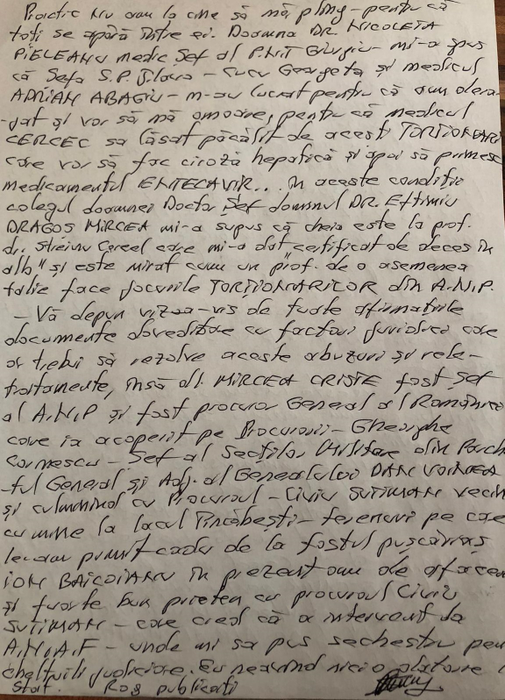 Practic nu am la cine să mă plîng - pentru că
toți se apără între ei. Doamna DR. NICOLETA
PIELEANU medic Șef al P.N.T Giurgiu - mi-a spus
că Șefa S.P. Jilava - Cucu Georgeta și medicul
ADRIAN ABAGIU - m-au lucrat pentru că am
și vor să mă omoare, pentru că medicul
CERCEC sa lăsat păcălit de acești TORȚIONARI
care vor să fac ciroză hepatică și apoi să primesc
medicamentul ENTECAVIR... În aceste condiții
colegul doamnei Doctor Șef domnul DR. Eftimiu
DRAGOȘ MIRCEA mi-a spus că cheia este la prof.
dr. Streinu Cercel care mi-a dat certificat de deces în
alb" și este mirat cum un "prof. de o asemenea
talie face jocurile TORȚIONARILOR din A.N.P.
- Vă depun vizza-vis de toate afirmațiile
documente doveditoare cu factori juridici care
ar trebui să rezolve aceste abuzuri și rele-
tratamente, însă dl. MIRCEA CRISTE fost șef
al A.N.P și fost procuror General al României
care ia acoperit pe Procurorii - Gheorghe
Cornescu - Șef al Secțiilor Militare din Parch
tul General și Adj. al Generalului DAN VOINEA
și culminînd cu Procurorul - Liviu SUTIMAN vecin
cu mine la lacul - terenuri pe care
le-am primit cadou de la fostul pușcăriaș
ION BAICOIANU în prezent om de afaceri
și foarte bun prieten cu procurorul Liviu
SUTIMAN - care cred că a intervenit la
A.N.A.F - unde mi sa pus sechestru pen
cheltuieli judiciare. Eu neavînd nicio
Stat. Rog publicați